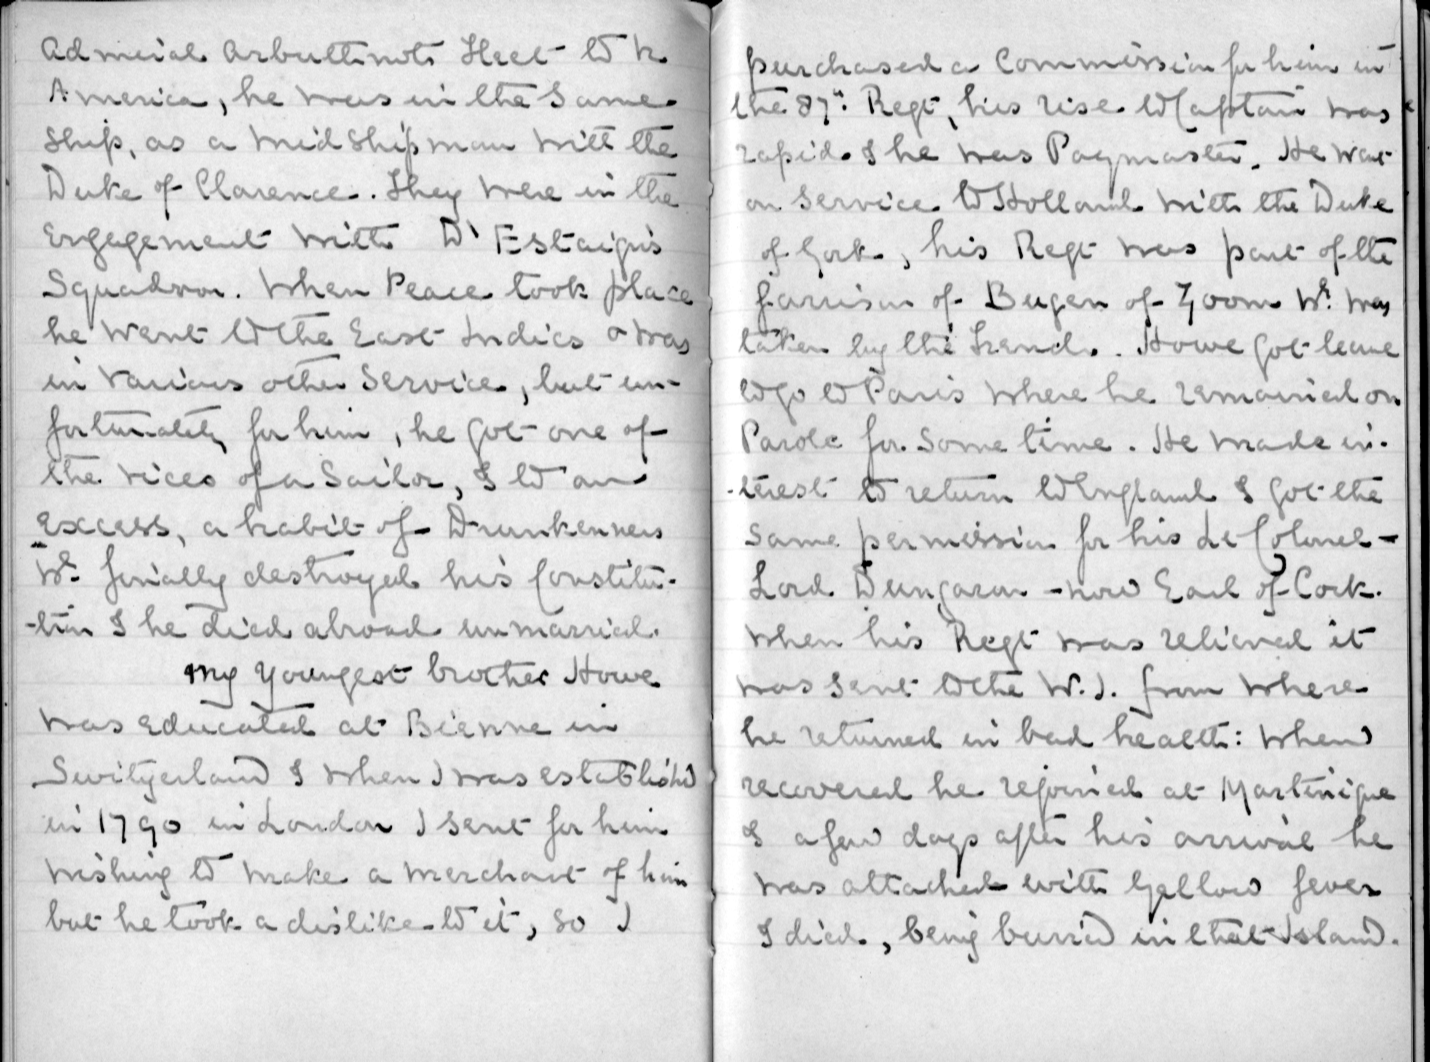 Admiral Arbuthnots Fleet to N.
America, he was in the same
Ship, as a midshipman with the
Duke of Clarence. They were in the
Engagement with D'Estaign's
Squadron. When Peace took place
he went to the East Indies & was
in various other Service, but un-
fortunately for him, he got one of
the vices of a Sailor, & to an
excess, a habit of Drunkenness
wh. finally destroyed his Constitu-
-tion & he died abroad unmarried.
My youngest brother Howe
was educated at Bienne in
Switzerland & when I was establish'd
in 1790 in London I sent for him
wishing to make a merchant of him
but he took a dislike to it, so I
purchased a Commission for him in
the 87th. Regt, his rise to Captain was
rapid & he was Paymaster. He went
on Service to Holland with the Duke
of York, his Regt was part of the
garrison of Bugen of Zoom wh. was
taken by the French. Howe got leave
to go to Paris where he remained on
Parole for some time. He made in-
-terest to return to England & got the
same permission for his Lt Colonel -
Lord Dungarvan - now Earl of Cork.
When his Regt was relieved it
was sent to the W.I. from where
he returned in bad health: when
recovered he rejoined at Martinique
& a few days after his arrival he
was attacked with yellow fever
& died, being buried in that Island.